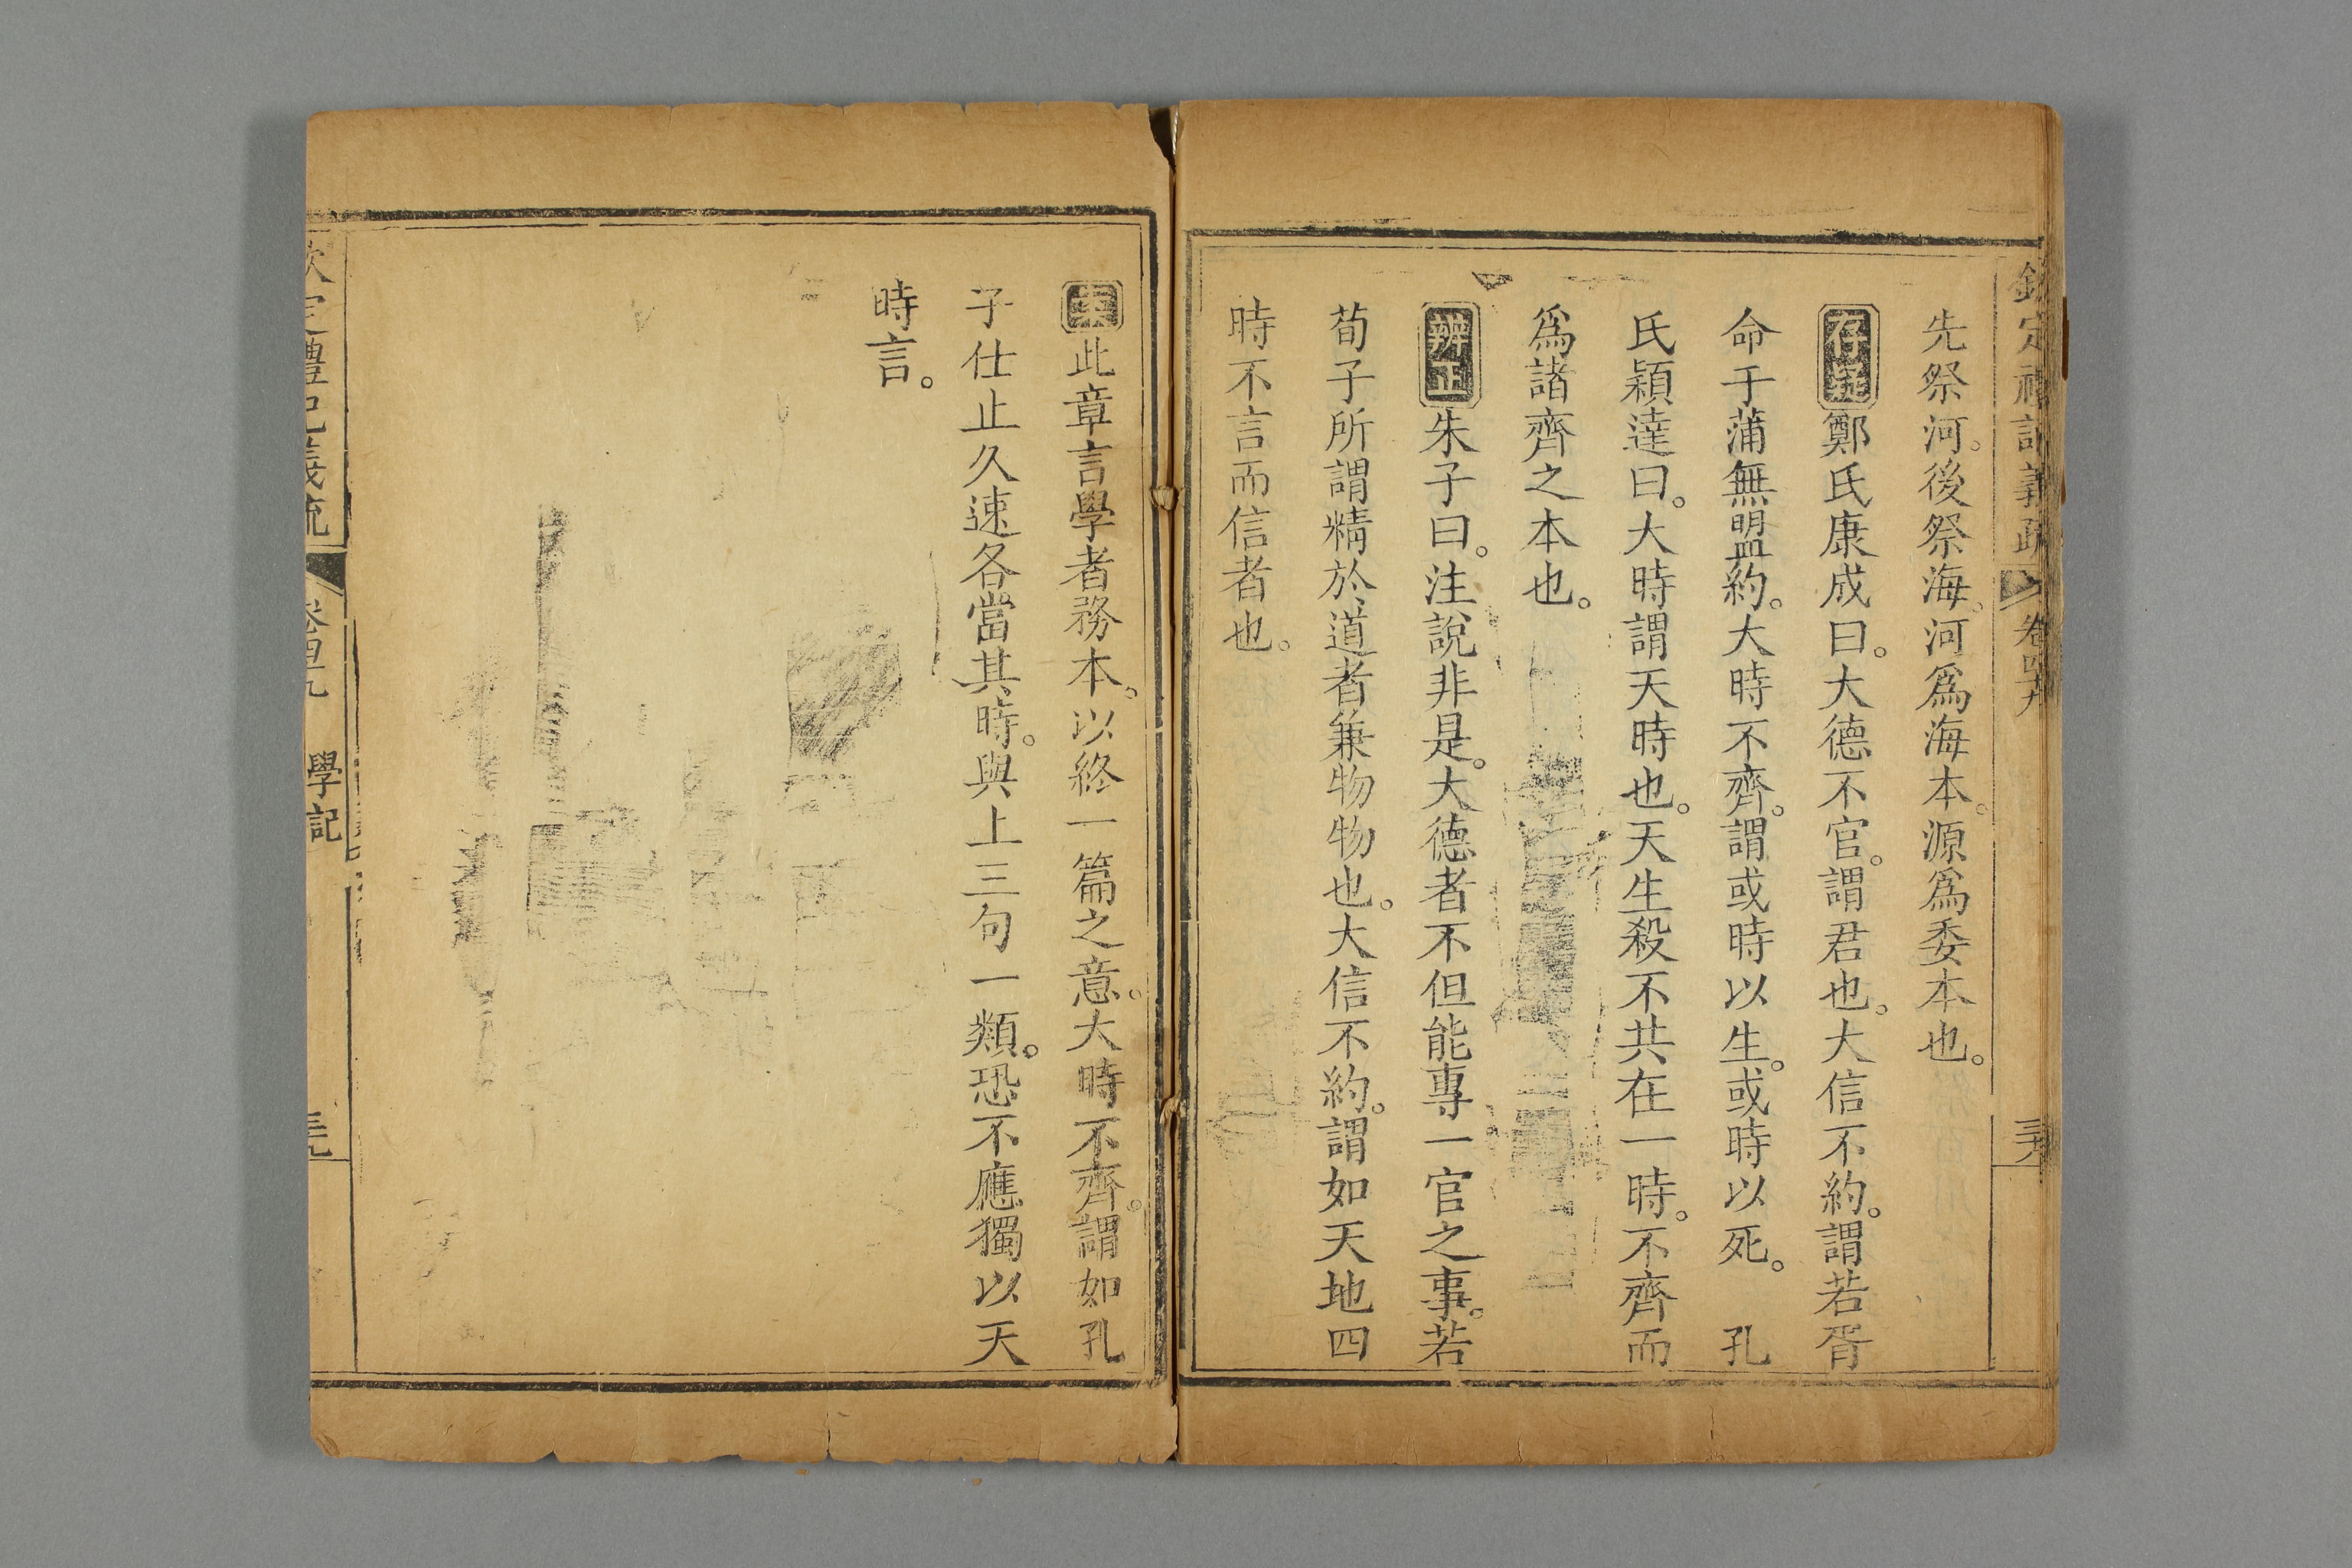 欽定禮記義疏 卷四十九 三六
先祭河。後祭海。河爲海本。源爲委本也。
存疑鄭氏康成曰。大德不官。謂君也。大信不約。謂若胥
命于蒲無盟約。大時不齊。謂或時以生。或時以死。 孔
氏穎達曰。大時謂天時也。天生殺不共在一時。不齊而
爲諸齊之本也。
辨正朱子曰。注說非是。大德者不但能專一官之事。若
荀子所謂精於道者兼物物也。大信不約。謂如天地四
時不言而信者也。
案此章言學者務本。以終一篇之意。大時不齊。謂如孔
子仕止久速各當其時。與上三句一類。恐不應獨以天
時言。
欽定禮記義疏 卷四十九 學記 三九